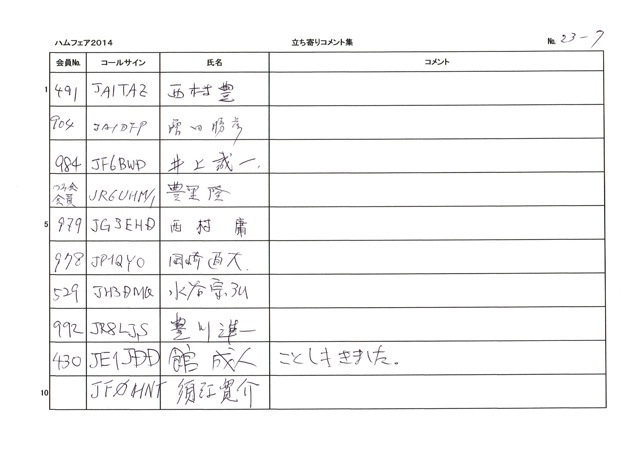 ハムフェア2014 立ち寄りコメント集 No. 23-7
会員No. コールサイン 氏名 コメント
1 491 JA1TAZ 西村豊
904 JA1DFP 勝彦
984 JF6BWD 井上誠一.
会員 JR6UHM/1 豊里隆
5 979 JG3EHD 西村庸
978 JP1QYO 岡崎直大.
529 JH3DMQ 水谷宗弘
992 JR8LJS 豊川準一
430 JE1JDD 館成人 ことしもきました。
10 JFØHNT 須江寛介